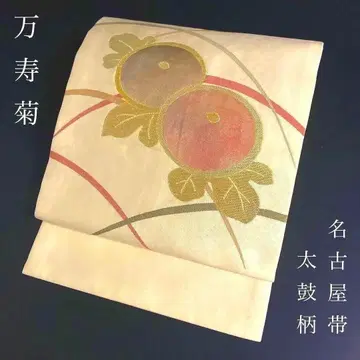 万寿菊
名古屋帯
太鼓柄